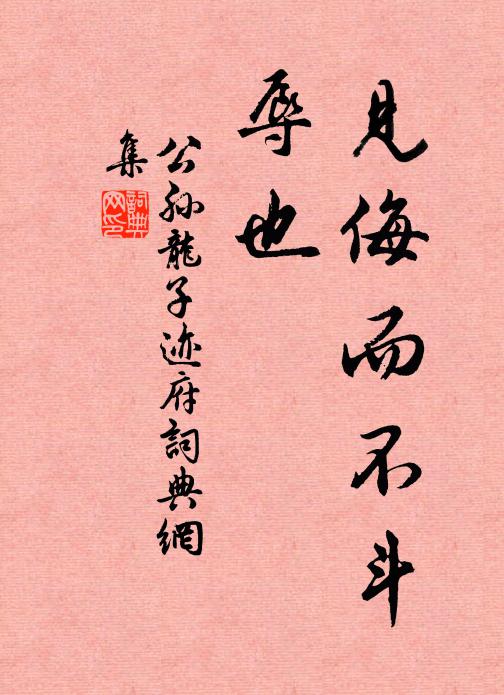 見侮而不斗
辱也
公孫龍子迹府詞典網
集
詞典
网印